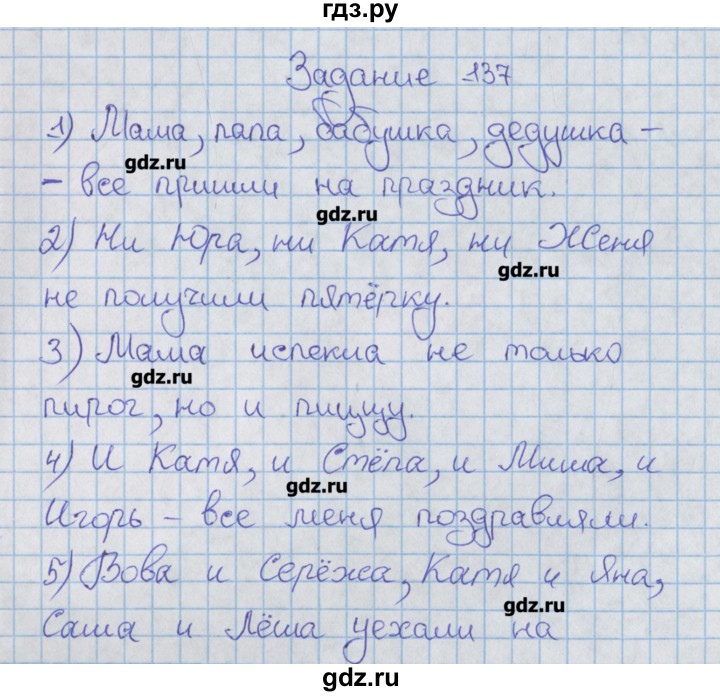 гдз.ру
Задание 137
1) Мама, папа, бабушка, дедушка -
gdz.ru
- все пришли на праздник.
gdz.ru
2) Ни Юра, ни Катя, ни Женя
gdz.ru
не получили пятёрку.
3) Мама испекла не только
gdz.ru
пирог, но и пиццу.
4) И Катя, и Стёпа, и Миша, и
gdz.ru
Игорь - все меня поздравляли.
5) Вова и Серёжа, Катя и Яна,
gdz.ru
Саша и Лёша уехали на
gdz.ru